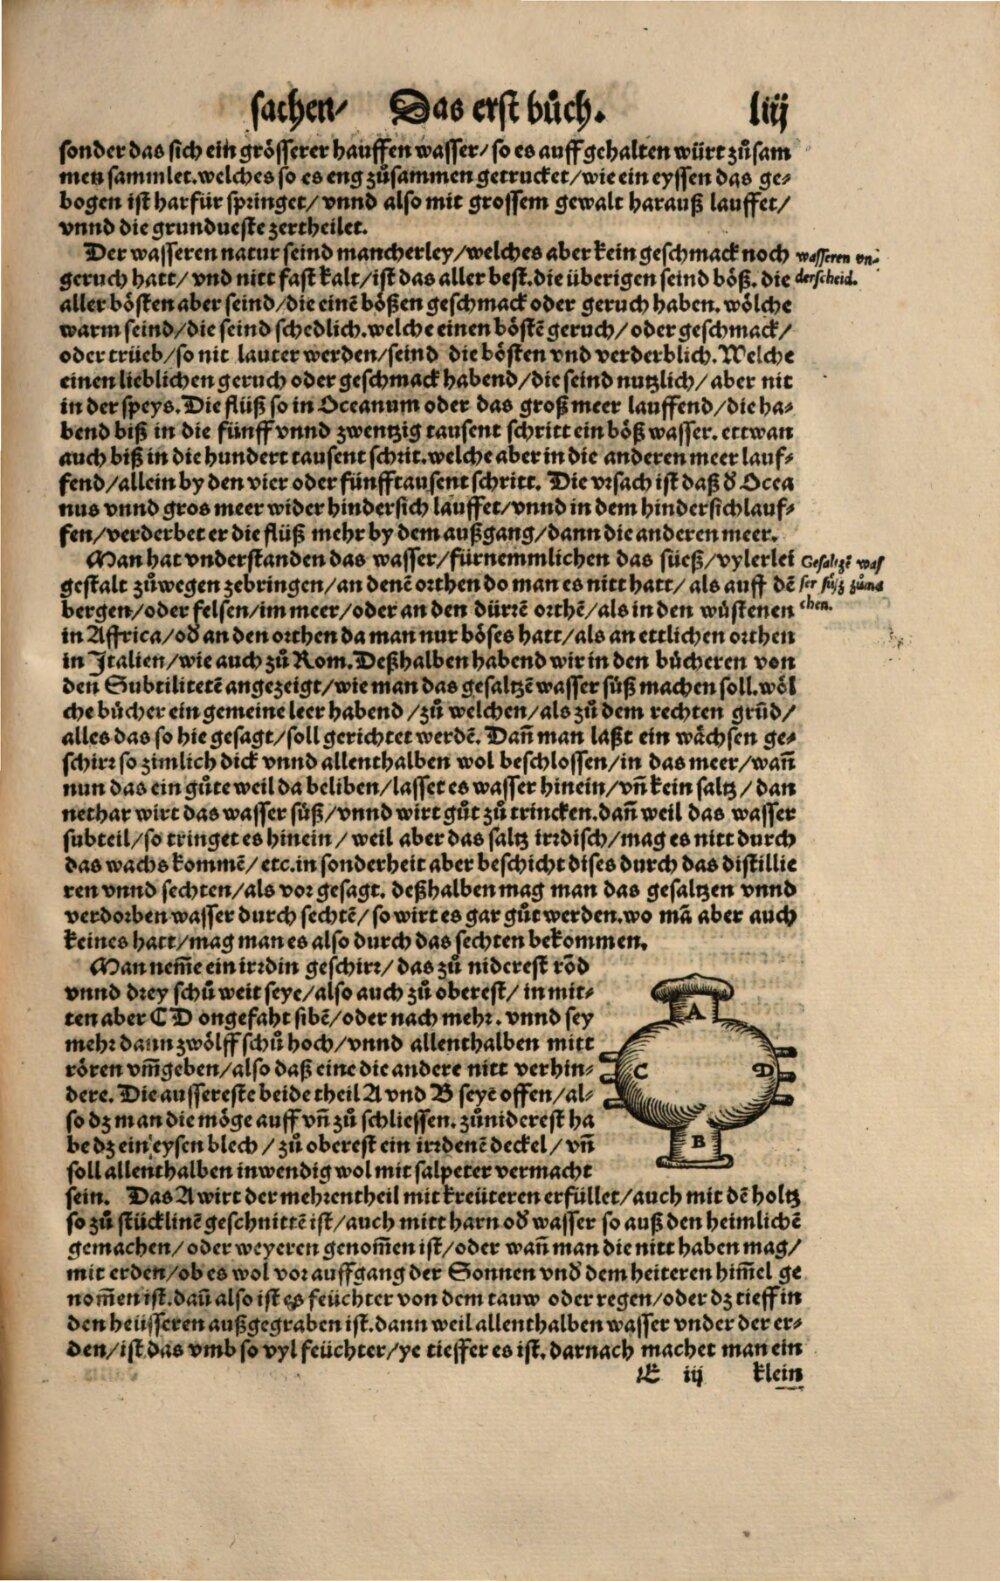 sachen/ Das erst bůch. liij
sonder das sich ein grösserer hauffen wasser/ so es auffgehalten würt zůsam
men sammlet. welches so es eng zůsammen getrucket/ wie ein eyssen das ge⸗
bogen ist harfür springet/ vnnd also mit grossem gewalt harauß lauffet/
vnnd die grundueste zertheilet.
Der wasseren natur seind mancherley/ welches aber kein geschmack noch
geruch hatt/ vnd nitt fast kalt/ ist das aller best. die überigen seind böß. die
wasseren vn⸗
derscheid.
aller bösten aber seind/ die einē bößen geschmack oder geruch haben. wölche
warm seind/ die seind schedlich. welche einen böstē geruch/ oder geschmack/
oder trüeb/ so nit lauter werden/ seind die bösten vnd verderblich. Welche
einen lieblichen geruch oder geschmack habend/ die seind nutzlich/ aber nit
in der speys. Die flüß so in Oceanum oder das groß meer lauffend/ die ha⸗
bend biß in die fünff vnnd zwentzig tausent schritt ein böß wasser. ettwan
auch biß in die hundert tausent schrit. welche aber in die anderen meer lauf⸗
fend/ allein by den vier oder fünfftausent schritt. Die vrsach ist daß d̄ Ocea
nus vnnd gros meer wider hindersich lauffet/ vnnd in dem hindersichlauf⸗
fen/ verderbet er die flüß mehr by dem außgang/ dann die anderen meer.
Man hat vnderstanden das wasser/ fürnemmlichen das süeß/ vylerlei
gestalt zůwegen zebringen/ an denē orthen do man es nitt hatt/ als auff dē
bergen/ oder felsen/ im meer/ oder an den dürrē orthē/ als in den wüstenen
Gesaltzē was
ser süß zůma
chen.
in Affrica/ od̄ an den orthen da man nur böses hatt/ als an ettlichen orthen
in Italien/ wie auch zů Rom. Deßhalben habend wir in den bücheren von
den Subtilitetē angezeigt/ wie man das gesaltzē wasser süß machen soll. wöl
che bücher ein gemeine leer habend/ zů welchen/ als zů dem rechten grūd/
alles das so hie gesagt/ soll gerichtet werdē. Dañ man laßt ein wächsen ge⸗
schirr so zimlich dick vnnd allenthalben wol beschlossen/ in das meer/ wañ
nun das ein gůte weil da beliben/ lasset es wasser hinein/ vñ kein saltz/ dan
nethar wirt das wasser süß/ vnnd wirt gůt zů trincken. dañ weil das wasser
subteil/ so tringet es hinein/ weil aber das saltz irrdisch/ mag es nitt durch
das wachs kommē/ etc. in sonderheit aber beschicht dises durch das distillie
ren vnnd sechten/ als vor gesagt. deßhalben mag man das gesaltzen vnnd
verdorben wasser durch sechtē/ so wirt es gar gůt werden. wo mā aber auch
keines hatt/ mag man es also durch das sechten bekommen.
Man nem̄e ein irrdin geschirr/ das zů niderest rōd
vnnd drey schů weit seye/ also auch zů oberest/ in mit⸗
ten aber C D ongefaht sibē/ oder nach mehr. vnnd sey
mehr dann zwölff schů hoch/ vnnd allenthalben mitt
rören vm̄geben/ also daß eine die andere nitt verhin⸗
dere. Die aussereste beide theil A vnd B seyē offen/ al⸗
so dz man die möge auff vñ zů schliessen. zůniderest ha
be dz ein eysen blech/ zů oberest ein irrdenē deckel/ vñ
soll allenthalben inwendig wol mit salpeter vermacht
A
C D
B
sein. Das A wirt der mehrentheil mit kreüteren erfüllet/ auch mit dē holtz
so zů stücklinē geschnittē ist/ auch mitt harn od̄ wasser so auß den heimlichē
gemachen/ oder weyeren genom̄en ist/ oder wañ man die nitt haben mag/
mit erden/ ob es wol vor auffgang der Sonnen vnd̄ dem heiteren him̄el ge
nom̄en ist. dañ also ist es feüchter von dem tauw oder regen/ oder dz tieff in
den heüsseren außgegraben ist. dann weil allenthalben wasser vnder der er⸗
den/ ist das vmb so vyl feüchter/ ye tieffer es ist. darnach machet man ein
E iij klein